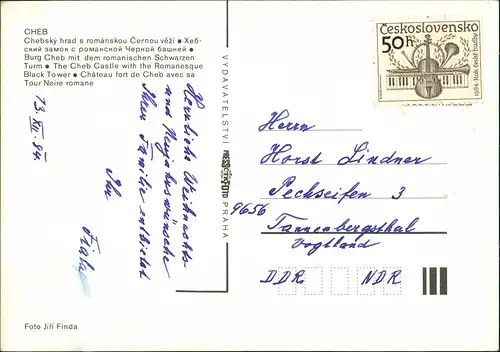 CHEB
Chebský hrad s románskou Černou věží • Хеб-
ский замок с романской Черной башней •
Burg Cheb mit dem romanischen Schwarzen
Turm • The Cheb Castle with the Romanesque
Black Tower • Château fort de Cheb avec sa
Tour Noire romane
13. XII. 84.
Herrliche Weihnachts-
und Neujahrswünsche
Ihrer Familie entbietet
Ihr
Fiala
Foto Jiří Finda
VYDAVATELSTVÍ PRESSFOTO PRAHA
Československo
50h
1984: Rok české hudby
Herrn
Horst Lindner
Pechseifen 3
9656
Tannenbergsthal
Vogtland
DDR. NDR